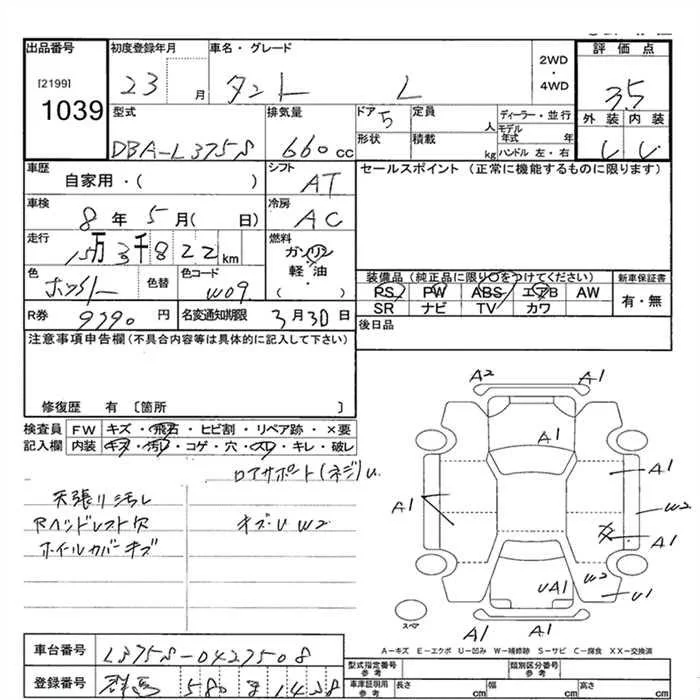 出品番号 初度登録年月 車名・グレード 2WD・4WD 評価点
[2199] 1039 23 月 タント L 3.5
型式 排気量 ドア 5 定員 人 ディーラー・並行 外装 内装
DBA-L375S 660 cc 形状 積載 kg モデル年式 年 ハンドル 左・右
車歴 自家用・( ) シフト AT セールスポイント (正常に機能するものに限ります)
車検 8年 5月( 日) 冷房 AC
走行 15万3千822 km 燃料 ガソリン
軽・油
( )
色 色替 色コード W09 装備品 (純正品に限り○をつけてください) 新車保証書
PS PW ABS エアB AW 有・無
SR ナビ TV カワ
R券 9790 円 名変通知期限 3月30日 後日品
注意事項申告欄 (不具合内容等は具体的に記入して下さい)
修復歴 有 〔箇所 〕
検査員 FW キズ・飛石・ヒビ割・リペア跡・×要
記入欄 内装 キズ・汚レ・コゲ・穴・スレ・キレ・破レ
ロアサポート(ネジ)U
天張リ汚レ
Rヘッドレスト欠 キズ・U W2
ホイールカバーキズ
A2 A1
A1
A1
A1 W2
A1
W2
UA1 U1
A1 A1
スペア
A－キズ E－エクボ U－凹み W－補修跡 S－サビ C－腐食 XX－交換済
車台番号 L375S-0427508
登録番号 群馬 580 1458
型式指定番号 参考 類別区分番号 参考
車庫証明用 参考 長さ cm 幅 cm 高さ cm